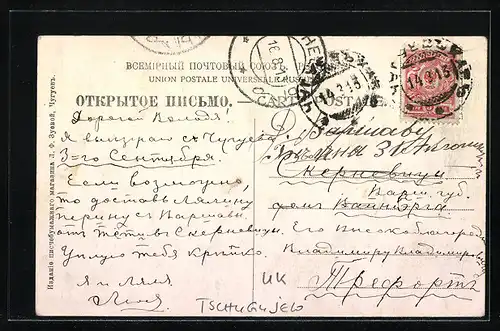 ВСЕМІРНЫЙ ПОЧТОВЫЙ СОЮЗЪ.
UNION POSTALE UNIVERSELLE RUSSIE
ОТКРЫТОЕ ПИСЬМО.
CARTE POSTALE
14.8.15
Изданіе писчебумажнаго магазина Л. Ф. Зуевой, Чугуевъ.
Дорогой Володя!
Я изъ Чугуева
3=го Сентября.
Если возможно,
то доставь Лялину
перину съ Варшавы
отъ тети въ Скерневицы.
Цѣлую тебя крѣпко.
Я и Ляля
Варшаву
Скерневицы
Варш. губ.
домъ Вайнберга
Его Высокоблагородію
Владимиру Владимировичу
Трефортъ
UK
TSCHUGUJEW